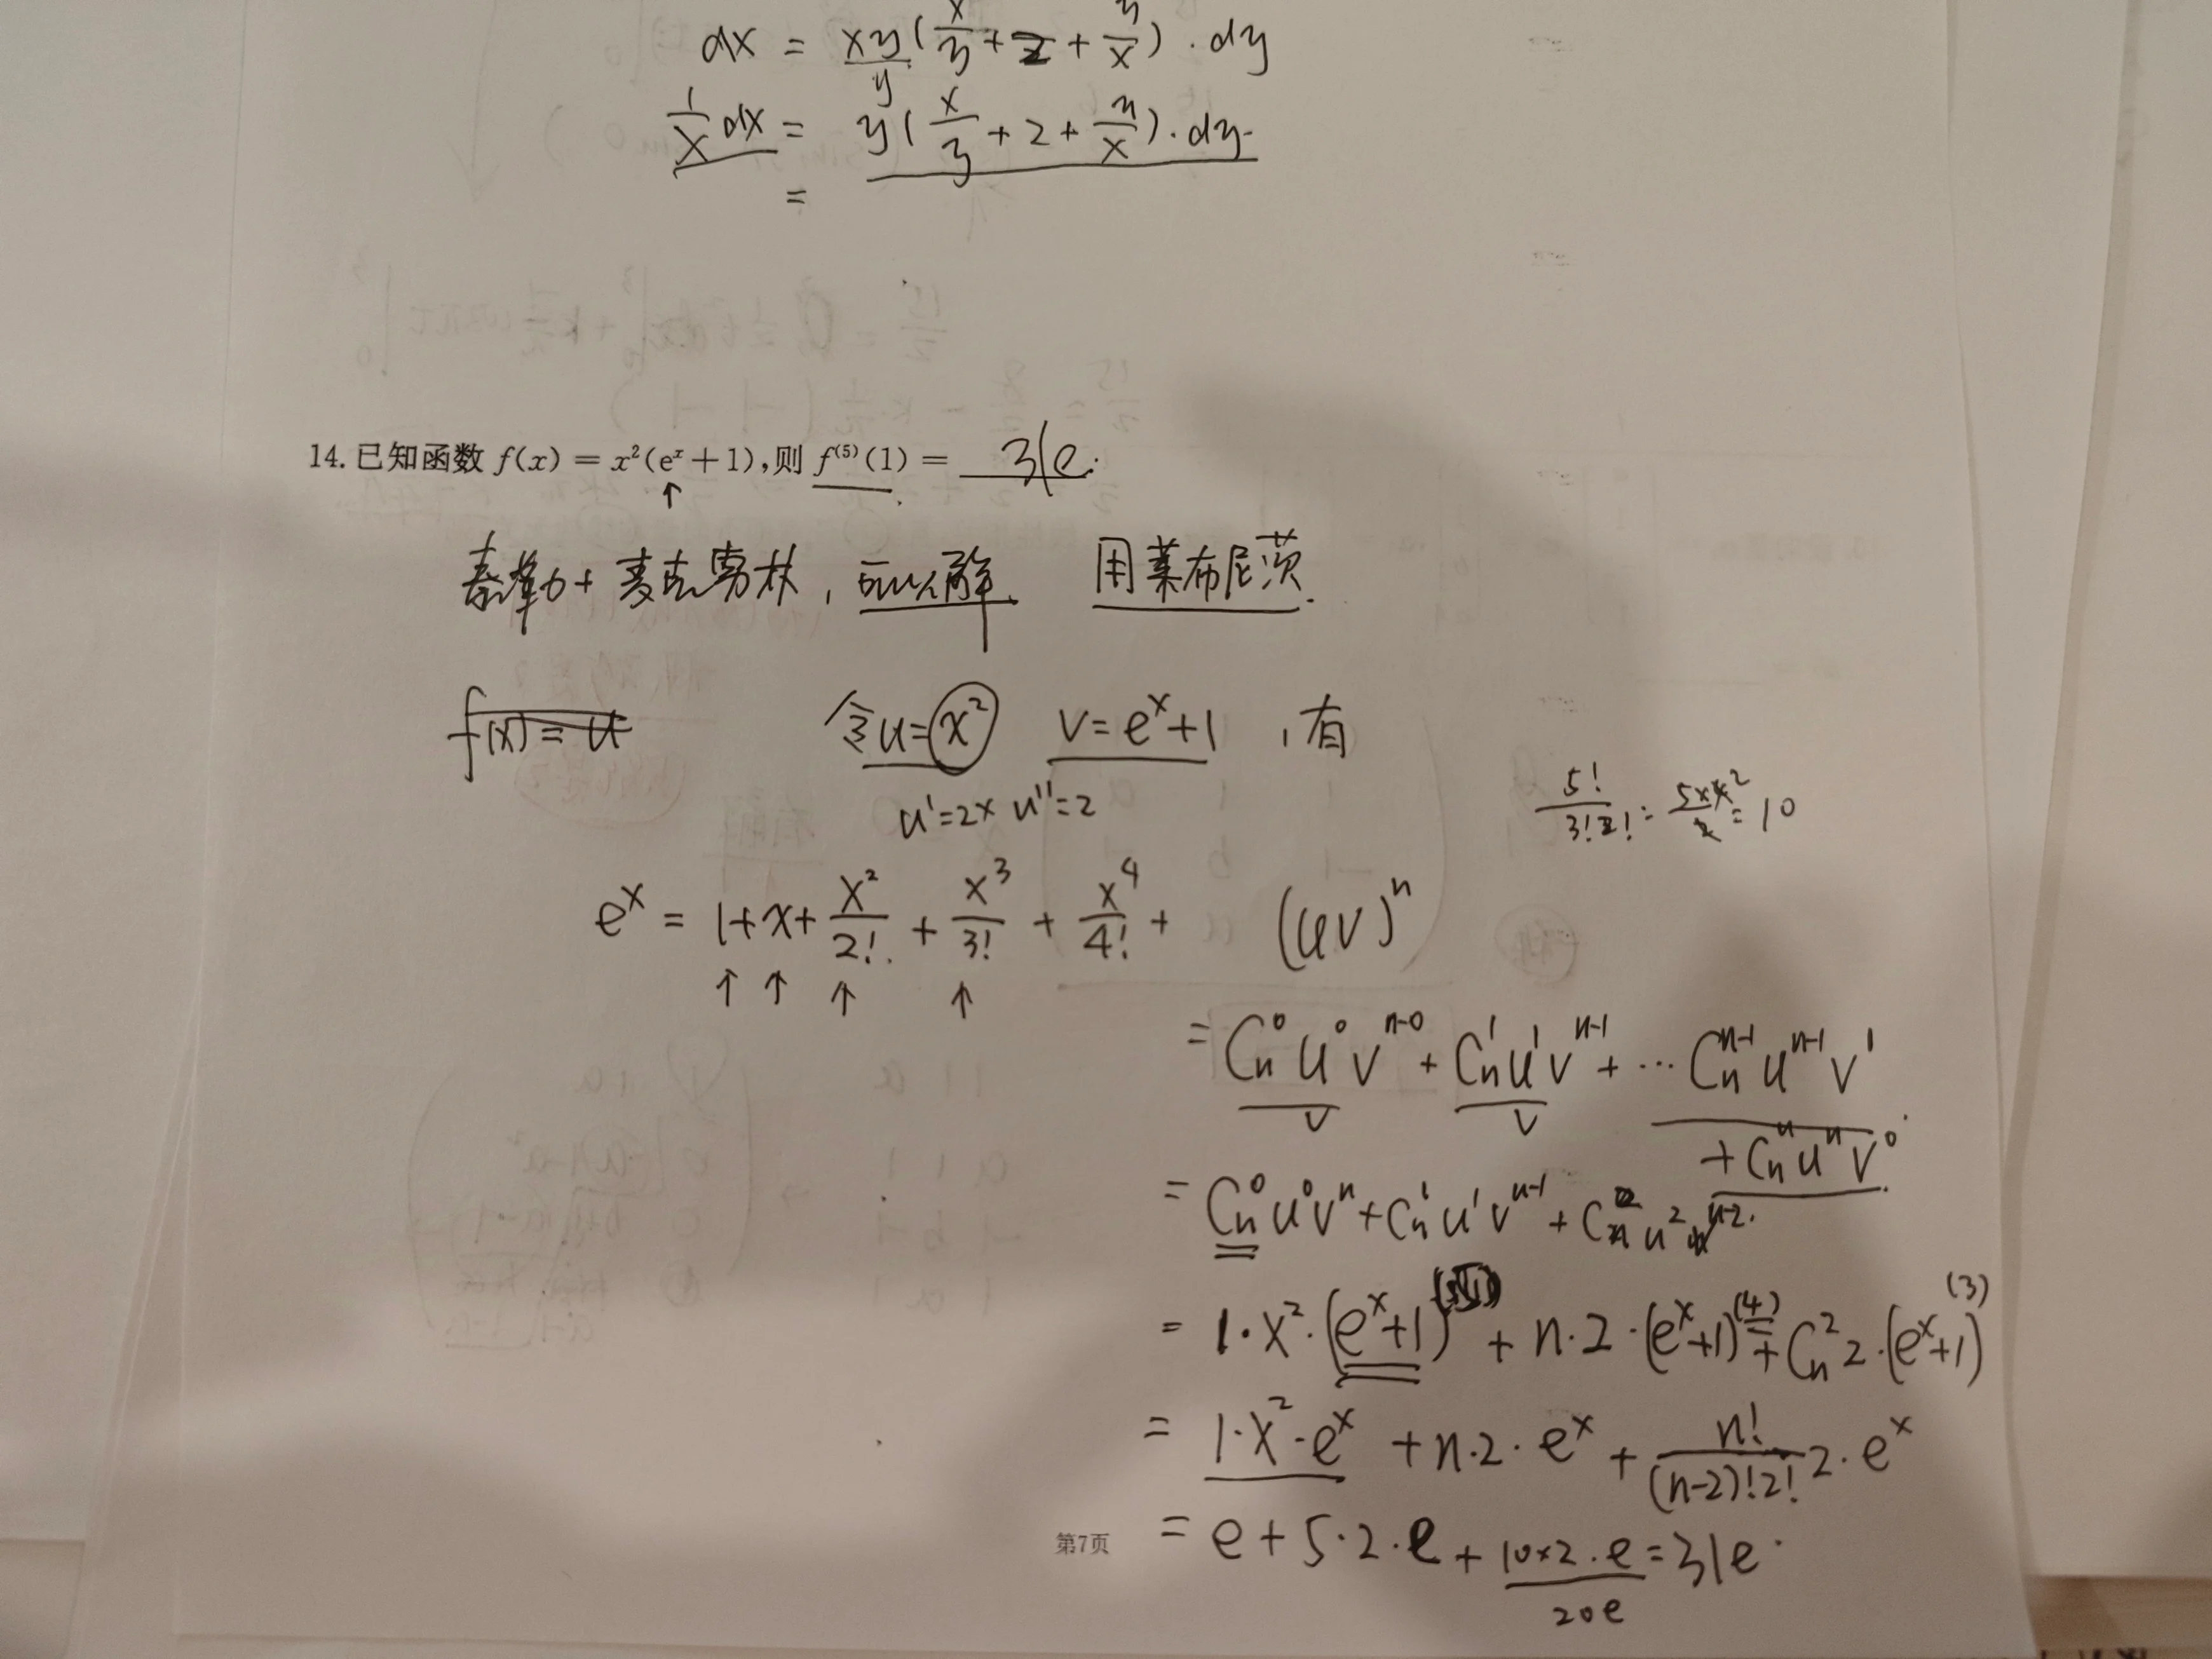 dx = xy/y (x/y + 2 + y/x) · dy
1/x dx = y(x/y + 2 + y/x) · dy
=
14. 已知函数 f(x) = x²(eˣ + 1), 则 f⁽⁵⁾(1) = 31e.
泰勒 + 麦克劳林, 可以解 用莱布尼茨.
f(x) = u 令u = x² v = eˣ + 1 , 有
u' = 2x u'' = 2
5!/(3!2!) = 5×4/2 = 10
eˣ = 1 + x + x²/2! + x³/3! + x⁴/4! +
(uv)ⁿ
= Cₙ⁰ u⁰ vⁿ⁻⁰ + Cₙ¹ u¹ vⁿ⁻¹ + ··· Cₙⁿ⁻¹ uⁿ⁻¹ v¹
+ Cₙⁿ uⁿ v⁰.
= Cₙ⁰ u⁰ vⁿ + Cₙ¹ u¹ vⁿ⁻¹ + Cₙ² u² vⁿ⁻².
= 1 · x² · (eˣ+1) + n · 2 · (eˣ+1)⁽⁴⁾ + Cₙ² 2 · (eˣ+1)⁽³⁾
= 1 · x² · eˣ + n · 2 · eˣ + n!/((n-2)!2!) 2 · eˣ
= e + 5 · 2 · e + 10×2 · e = 31e.
20e
第7页